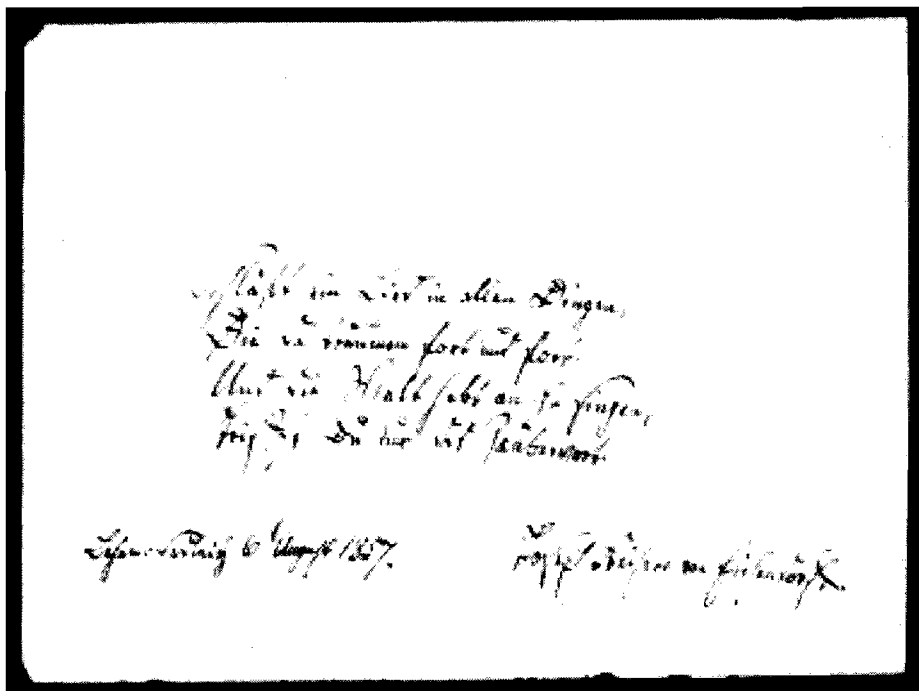 Schläft ein Lied in allen Dingen,
Die da träumen fort und fort
Und die Welt hebt an zu singen,
Triffst Du nur das Zauberwort.
6 August 1857.
Joseph Freiherr von Eichendorff.